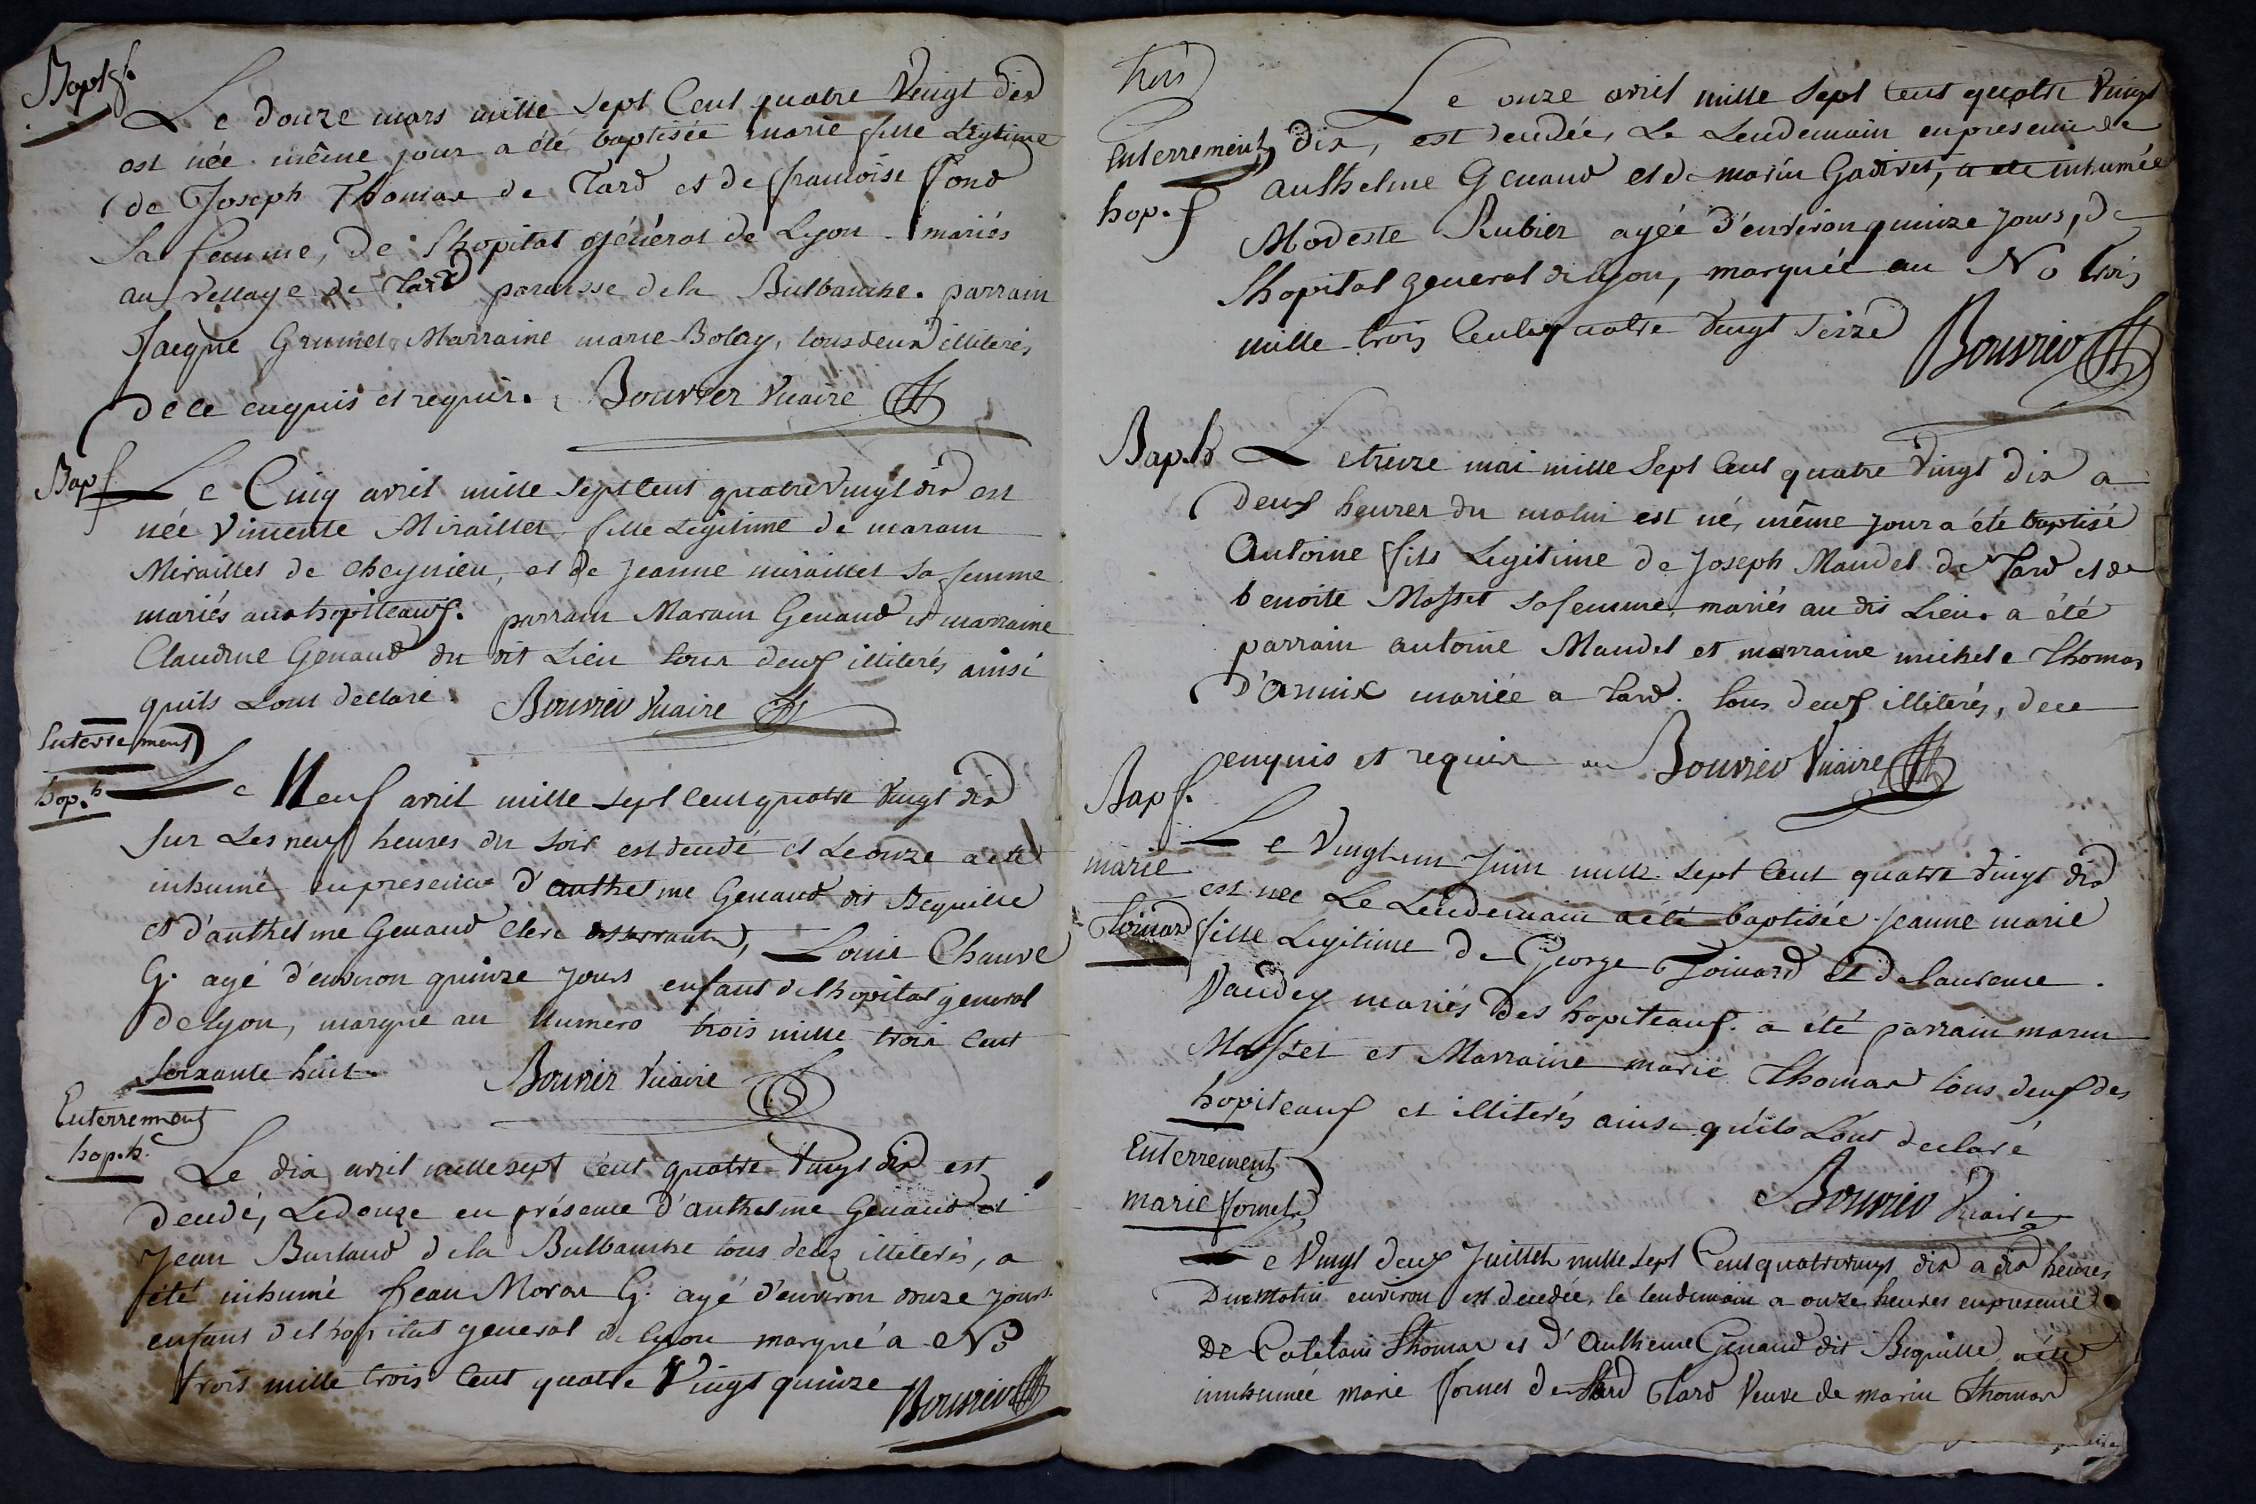 Bapt. f.
Le douze mars mille sept Cent quatre Vingt dix
est née même jour a été baptisée marie fille Légitime
de Joseph Thomas de Tard et de francoise fond
Sa femme, de l'hopital général de Lyon mariés
au village de Tard paroisse dela Bulbanche. parrain
Jacque Grumet Marraine marie Bolley, tous deux illiterés
de ce enquis et requir. Bouvier Vicaire
Bap f
Le Cinq avril mille sept Cent quatre vingt dix est
née Vincente Miraillet fille Légitime de maram
Miraillet de cheynieu, et de Jeanne miraillet sa femme
mariés aux hopiteaux. parrain Maram Genaud et marraine
Claudine Genaud du dit Lieu tous deux illiterés ainsi
quils Lont declaré Bouvier Vicaire
Enterrement
hop. h
Le Neuf avril mille sept Cent quatre Vingt dix
sur Les neuf heures du soir est decedé et Le onze a eté
inhumé en presence d'anthelme Genaud dit Bequille
et d'anthelme Genaud Clerc desservant, Louis Chauve
G. agé d'environ quinze jours enfant de lhopital general
de Lyon, marque au Numero trois mille trois Cent
soixante huit. Bouvier Vicaire
Enterrement
hop. h.
Le dix avril mille sept Cent quatre Vingt dix est
decedé, Le douze en présence d'anthelme Genaud et
Jean Burlaud de la Bulbanche tous deux illiterés, a
été inhumé Jean Moran G. agé d'environ onze jours
enfant de l'hopital general de Lyon marqué a No
trois mille trois Cent quatre Vingt quinze Bouvier
trois
Enterrement
hop. f
Le onze avril mille Sept Cent quatre Vingt
dix, est decedée, Le Lendemain en presence de
anthelme Genaud et de marin Gadivet, a eté inhumée
Modeste Rubier agée d'environ quinze jours, de
l'hopital general de Lyon, marquée au No trois
mille trois Cent quatre Vingt seize Bouvier
Bap. h
Le treize mai mille Sept Cent quatre Vingt dix a
deux heures du matin est né, même jour a été baptisé
Antoine fils Legitime de Joseph Mandet de Tard et de
benoite Mosset sa femme mariés au dit Lieu. a été
parrain antoine Mandet et marraine michele Thomas
D'armix mariée a tard. tous deux illiterés, de ce
enquis et requir Bouvier Vicaire
Bap f.
marie
Toinard
Le Vingt un Juin mille Sept Cent quatre Vingt dix
est née Le Lendemain a été baptisée Jeanne marie
fille Legitime de George Toinard et de laurence
Vaudey mariés des hopiteaux. a été parrain marin
Mosset et Marraine marie Thomas tous deux des
hopiteaux et illiterés ainsi quils Lont declaré
Bouvier Vicaire
Enterrement
marie fornet
Le Vingt deux Juillet mille sept Cent quatre vingt dix a dix heures
Du matin environ est decedée, le lendemain a onze heures en presence
De Thomas et d'Anthelme Genaud dit Bequille a été
innhumée marie fornet de Tard Veuve de marin Thomas